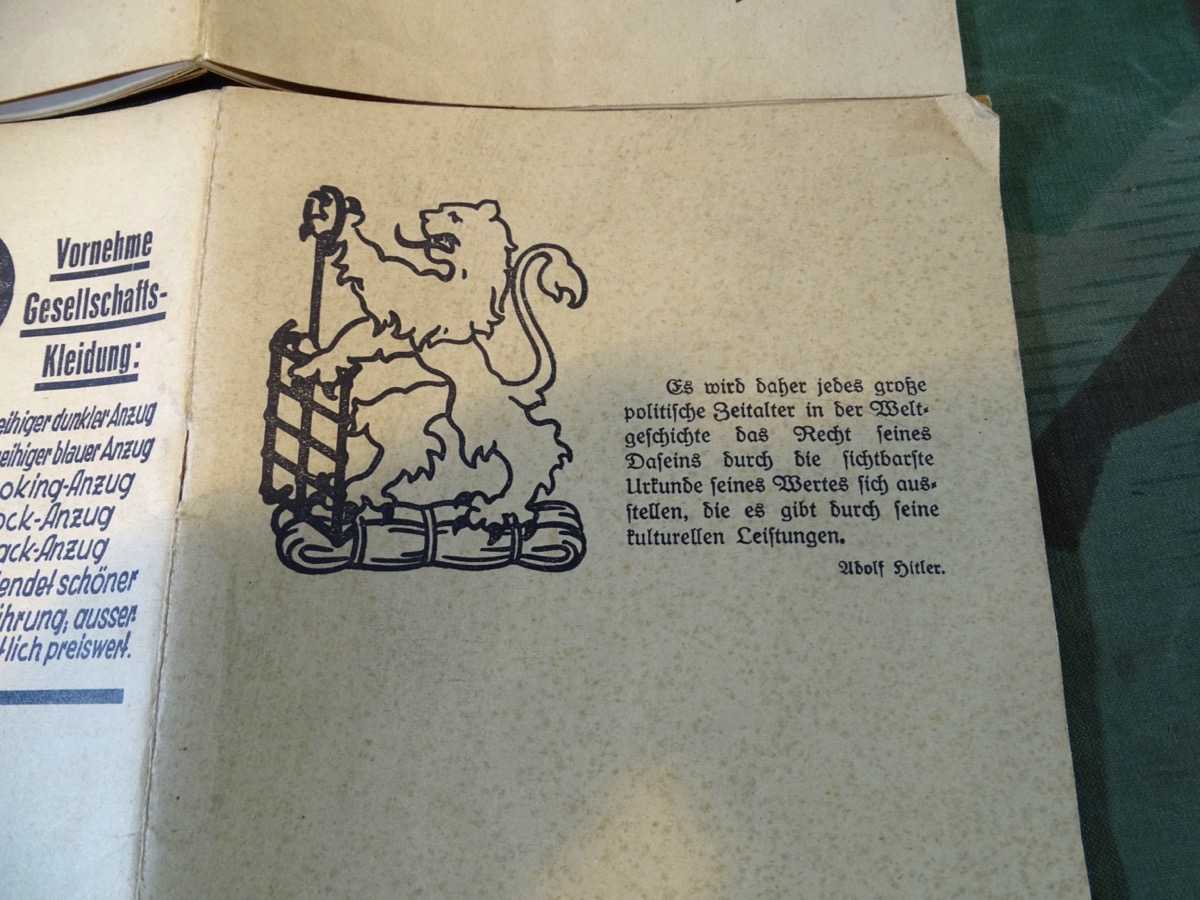 Vornehme
Gesellschafts-
Kleidung:
dunkler Anzug
blauer Anzug
-Anzug
-Anzug
-Anzug
schöner
ausser
preiswert.
Es wird daher jedes große
politische Zeitalter in der Welt-
geschichte das Recht seines
Daseins durch die sichtbarste
Urkunde seines Wertes sich aus-
stellen, die es gibt durch seine
kulturellen Leistungen.
Adolf Hitler.